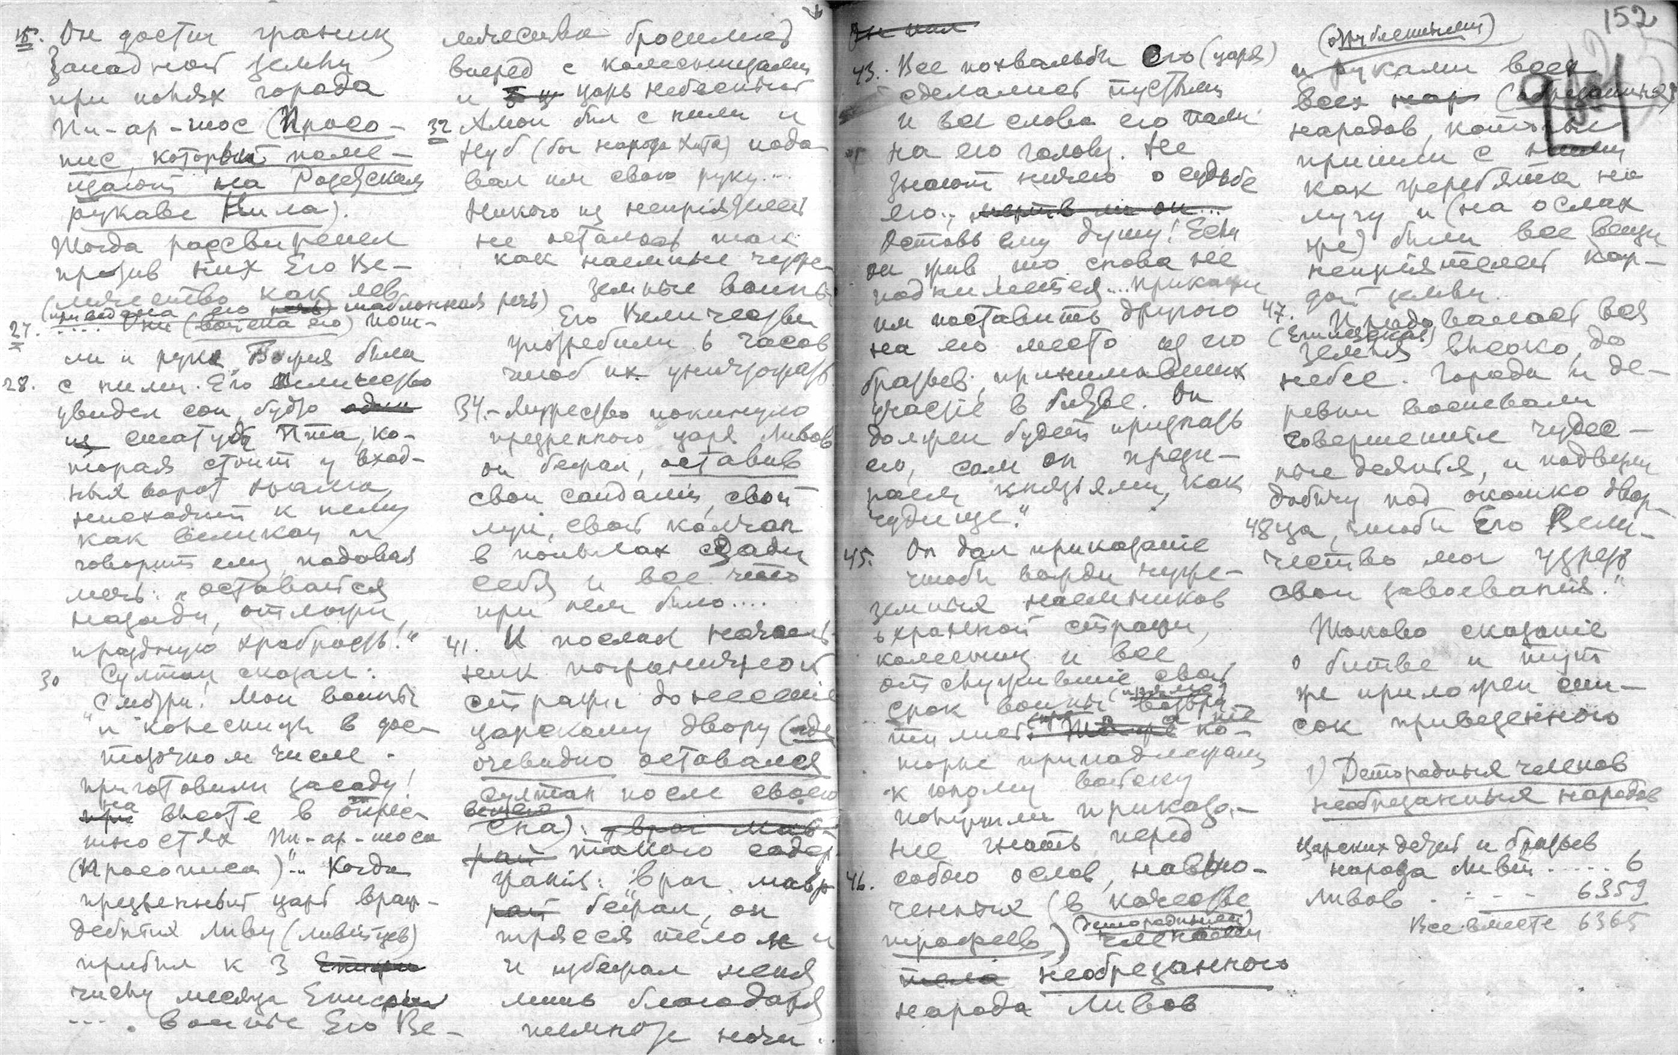 15. Он достиг границ
Западной земли
при полях города
Пи-ар-шос (Просо-
пис, который поме-
щают на Розетском
рукаве Нила).
Тогда рассвирепел
против них Его Ве-
личество как лев
(приведена его шаблонная речь)
27. .... Они (войска его) пош-
ли и рука Божия была
28. с ними. Его Величество
увидел сон, будто
статуя Пта, ко-
торая стоит у вход-
ных ворот храма,
нисходит к нему
как великан и
говорит ему, подавая
мечь: "оставайся
назади, отложи
праздную храбрость!"
30 Султан сказал:
Смотри! Мои воины
и колесницы в дос-
таточном числе.
приготовили засаду!
на высоте в окрес-
тностях Пи-ар-шоса
(Прозописа)"... Когда
презренный царь враж-
дебных Ливу (ливийцев)
прибыл к 3
числу месяца Епифи
.... воины Его Ве-
личества бросились
вперед с колесницами
и царь небесный
32 Амон был с ними и
Нуб (бог народа Хита) пода
вал им свою руку...
Никого из неприятелей
не осталось так
как наемные чуже-
земные воины
Его Величества
употребили 6 часов
чтоб их уничтожать
34.- презренного царя Ливов
он бежал, оставив
свои сандалии, свой
лук, свой колчан
в попыхах сзади
себя и все что
при нем было....
41. И послал началь-
ник пограничной
стражи донесение
царскому двору (где
очевидно оставался
султан после своего
вещего
сна):
такого содер
жания: "враг
бежал, он
трясся телом и
и избежал меня
лишь благодаря
темноте ночи...
152
43. Все похвальбы его (царя)
сделались пустыми
и все слова его пали
на его голову. Не
знают ничего о судьбе
его..
Оставь ему душу! Если
он жив то снова не
поднимется.. прикажи
им поставить другого
на его место из его
братьев, принимавших
участие в битве. Он
должен будет признать
его, сам он презираем
князьями, как
чудище."
45. Он дал приказание
чтобы вожди чуже-
земных наемников
охранной стражи,
колесниц и все
отслужившие свой
срок воины
ко-
торые принадлежали
к юному войску
получили приказа-
ние гнать перед
46. собою ослов, навью-
ченных (в качестве
трофеев) детородными
членами
необрезанного
народа Ливов
(отрубленными)
и руками всех
всех
народов, которые
пришли с ними
как жеребята на
лугу и (на ослах
же) были все вещи
неприятелей каж-
дой земли.
47. вся
(Египетская)
земля высоко, до
небес. Города и де-
ревни воспевали
совершенные чудес-
ные деяния, и подвезли
добычу под окошко двор
48 ца, чтобы Его Вели-
чество мог узреть
свои завоевания."
Таково сказание
о битве и тут
же приложен спи-
сок приведенного
1) Детородных членов
необрезанных народов
Царских детей и братьев
народа Ливii ..... 6
Ливов . - - - 6359
Все вместе 6365